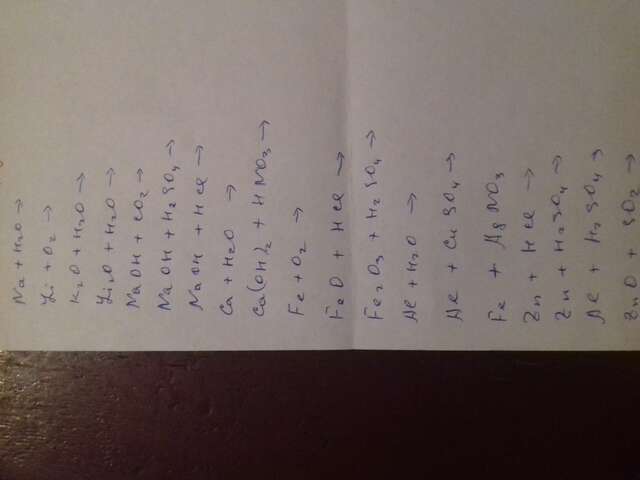 Na + H2O →
Li + O2 →
K2O + H2O →
Li2O + H2O →
NaOH + CO2 →
NaOH + H2SO4 →
NaOH + HCl →
Ca + H2O →
Ca(OH)2 + HNO3 →
Fe + O2 →
FeO + HCl →
Fe2O3 + H2SO4 →
Al + H2O →
Al + CuSO4 →
Fe + AgNO3
Zn + HCl →
Zn + H2SO4 →
Al + H2SO4 →
ZnO + SO2 →